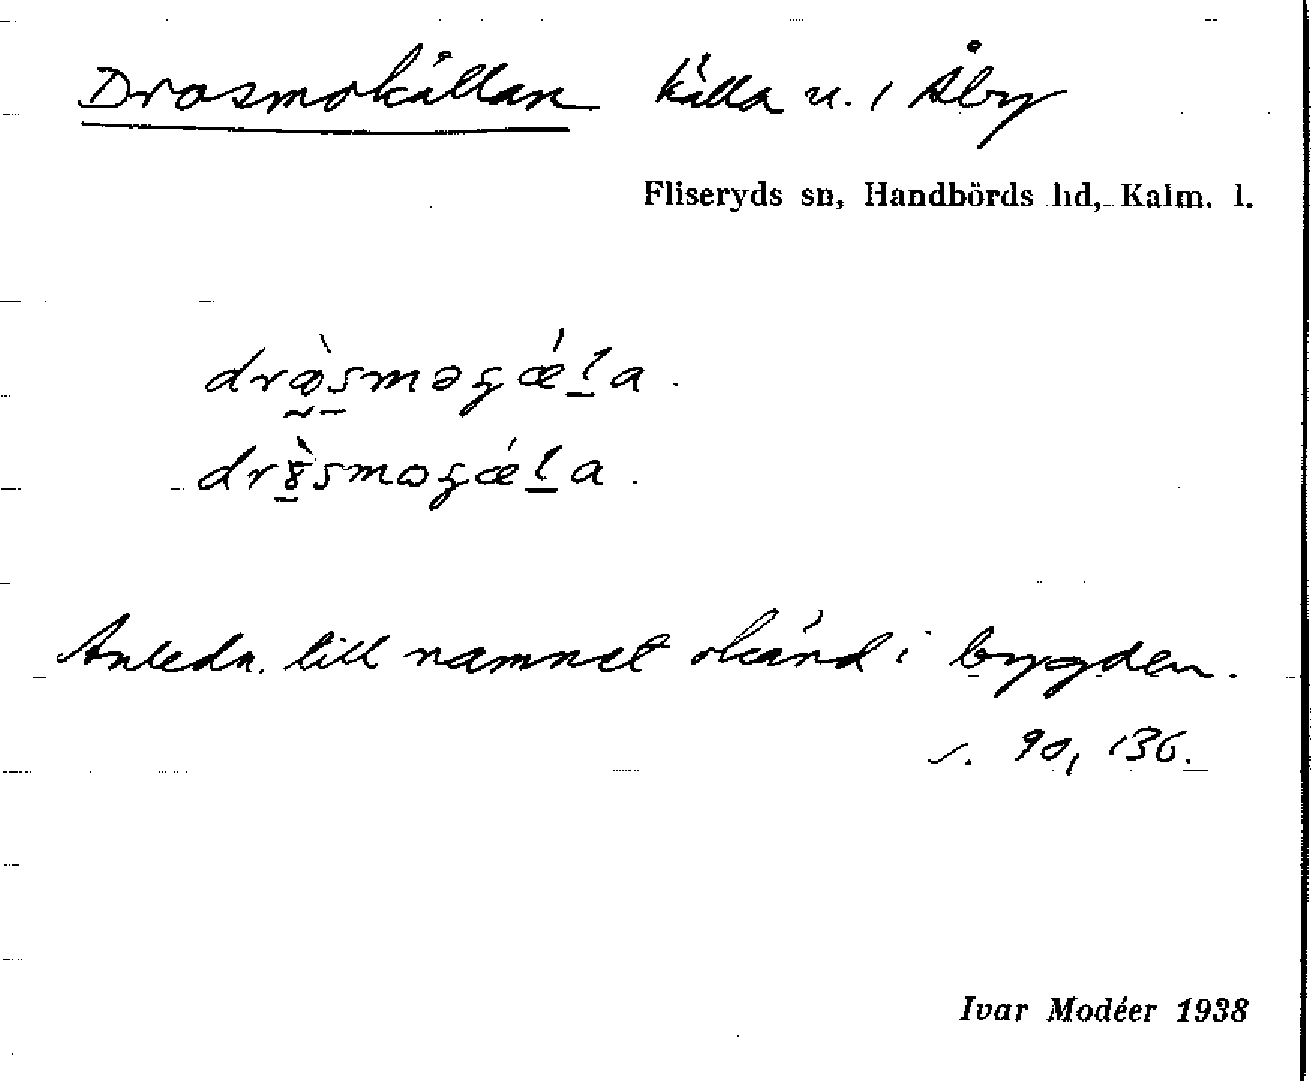 Drosmokällan källa n. i Åby
Fliseryds sn, Handbörds hd, Kalm. l.
Anledn. till namnet okänd i bygden.
s. 90, 136.
Ivar Modéer 1938